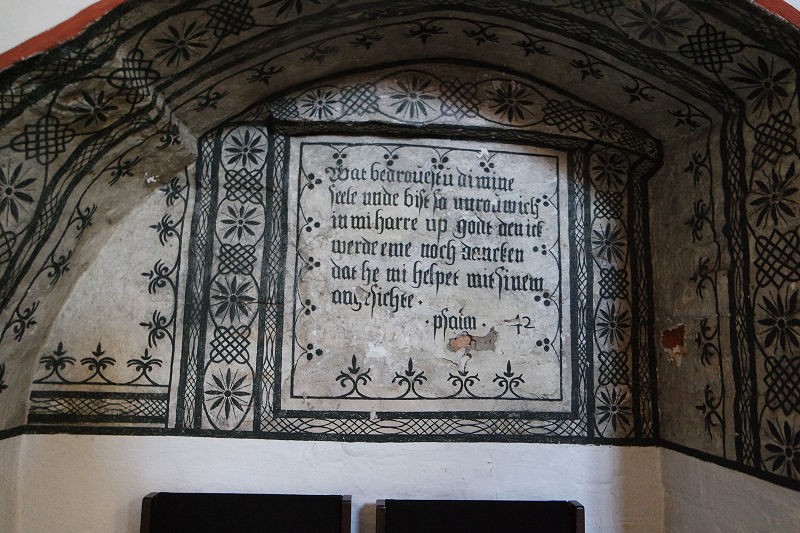 Wat bedrouestu di mine
seele unde bist so unrowich
in mi harre up godt den ick
werde eme noch dancken
dat he mi helpet mit sinem
angesichte.
. psalm . 42